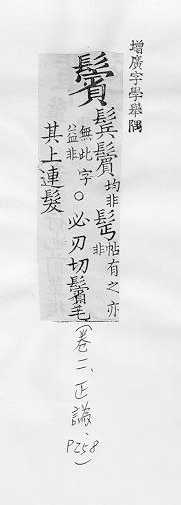 增廣字學舉隅
鬢
鬂鬢均非
帖有之亦非
無此字
益非
○必刃切鬢毛
其上連髮
(卷二、正譌、P258)